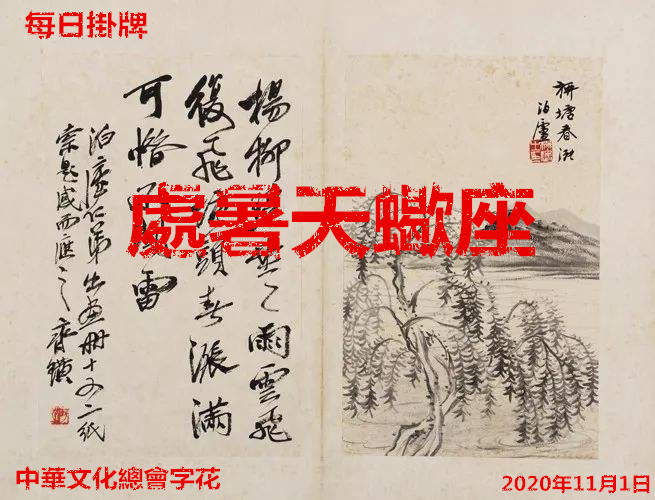 每日掛牌
塘春漲
泊廬
處暑天蠍座
楊柳雨雲飛
復飛頭春漲滿
可惜雷
泊廬仁弟出畫冊十又二紙
索題感而應之齊璜
中華文化總會字花
2020年11月1日